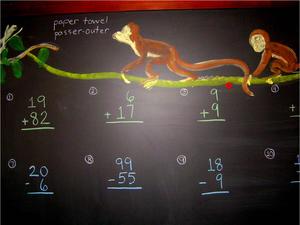 paper towel
passer-outer
① 19
+82
② 6
+17
③ 9
+9
⑦ 20
-6
⑧ 99
-55
⑨ 18
-9